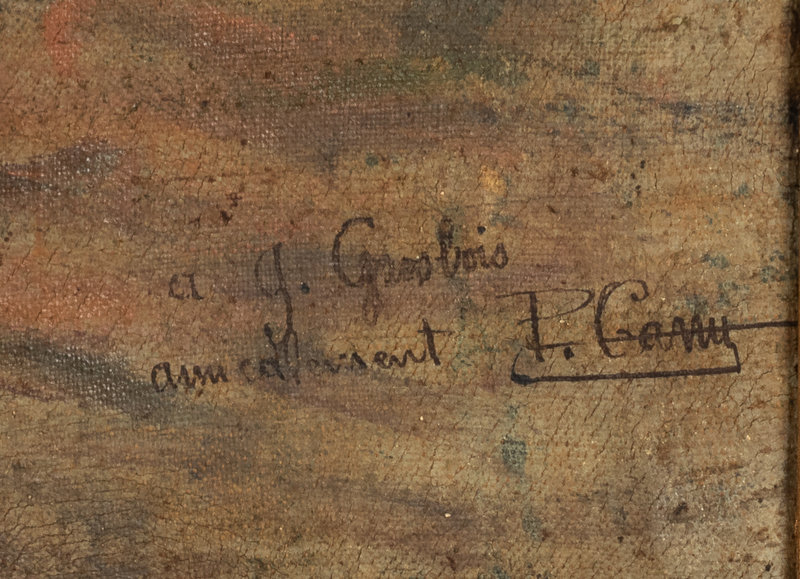 a J. Grosbois
amicalement P. Camu